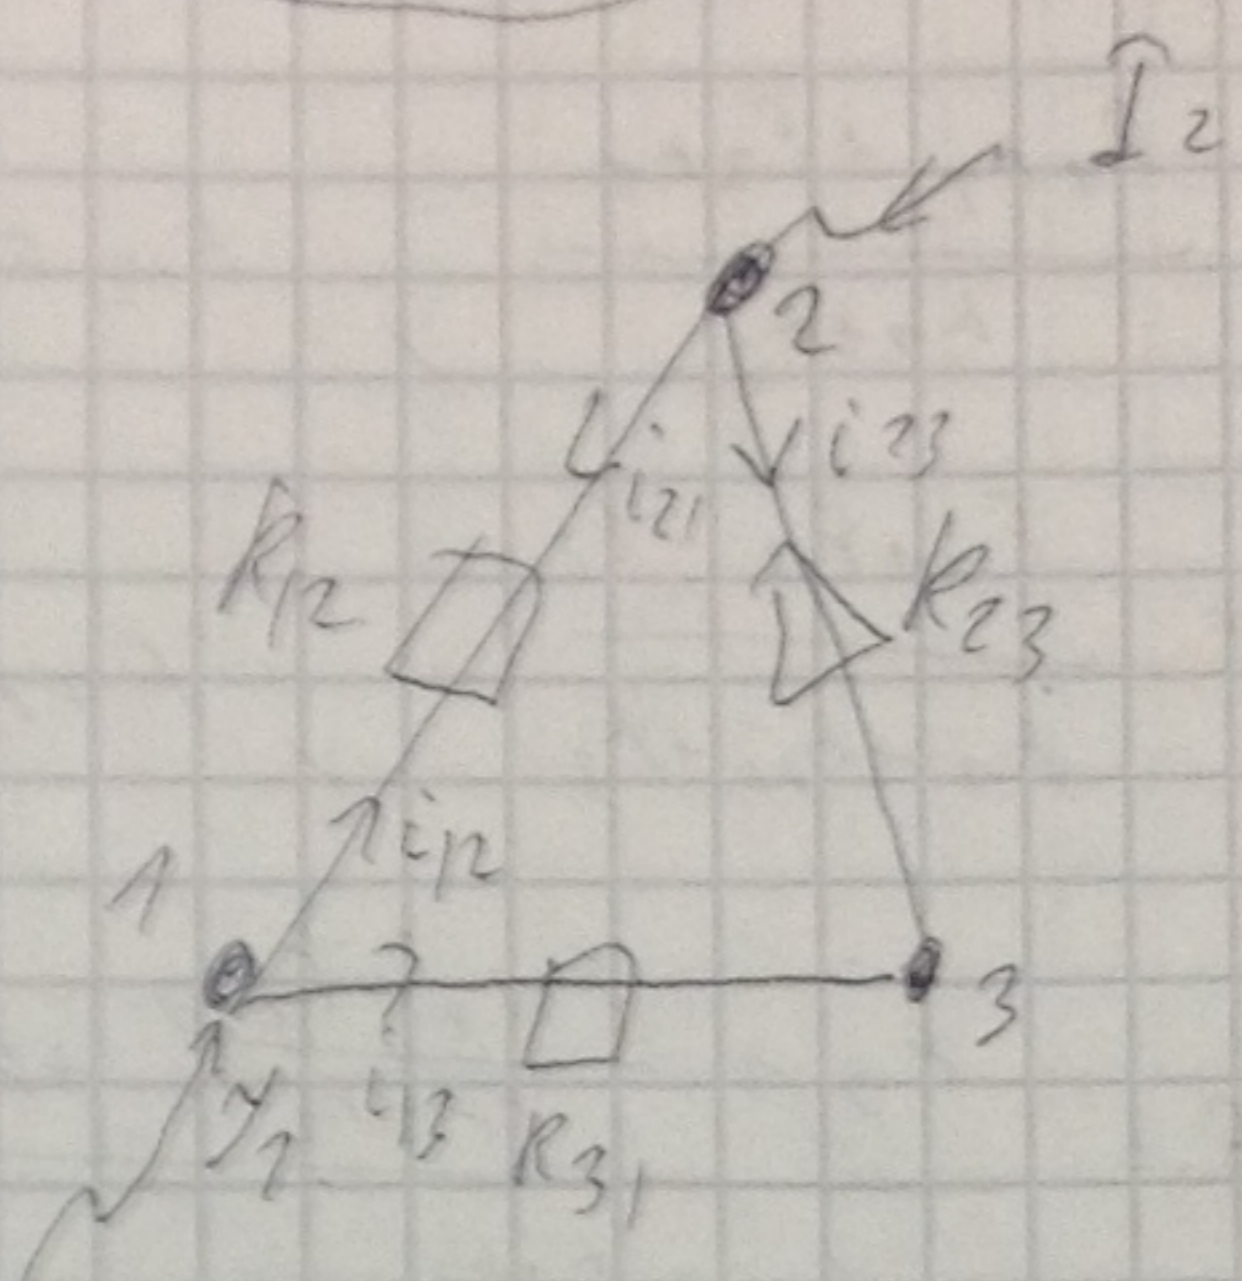 I2
2
i23
i21
R12
R23
i12
1
3
i13
R31